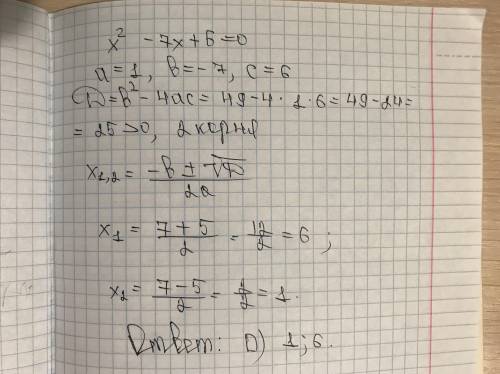 x² - 7x + 6 = 0
a = 1, b = -7, c = 6
D = b² - 4ac = 49 - 4 · 1 · 6 = 49 - 24 =
= 25 > 0, 2 корня
x₁,₂ = (-b ± √D) / 2a
x₁ = (7 + 5) / 2 = 12/2 = 6 ;
x₂ = (7 - 5) / 2 = 2/2 = 1.
Ответ: D) 1; 6.